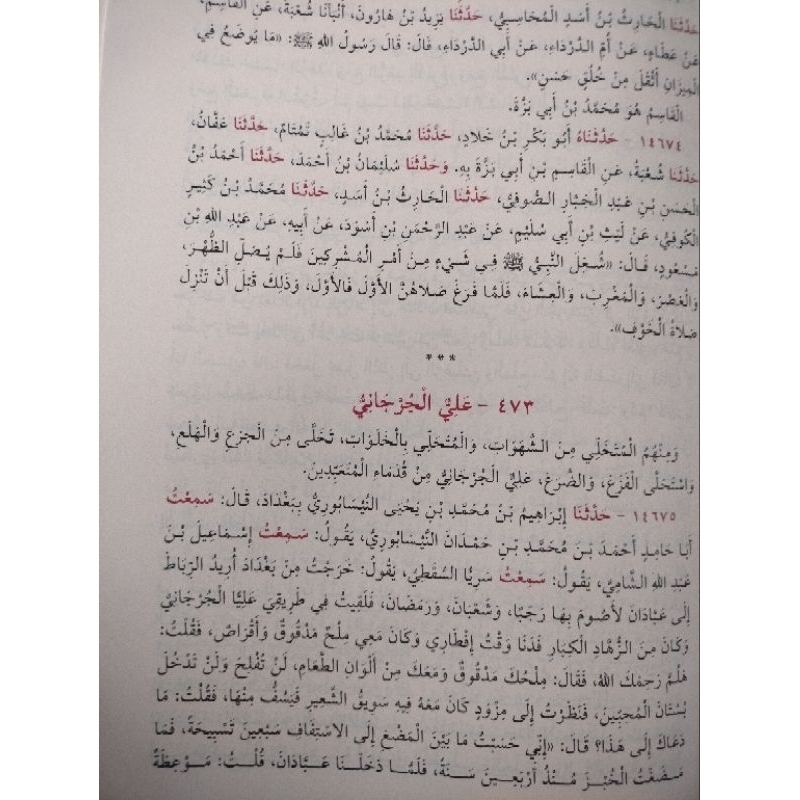 حَدَّثَنَا الْحَارِثُ بْنُ أَسَدٍ الْمُحَاسِبِيُّ، حَدَّثَنَا يَزِيدُ بْنُ هَارُونَ، أَنْبَأَنَا شُعْبَةُ، عَنِ الْقَاسِمِ،
عَنْ عَطَاءٍ، عَنْ أُمِّ الدَّرْدَاءِ، عَنْ أَبِي الدَّرْدَاءِ، قَالَ: قَالَ رَسُولُ اللهِ ﷺ: «مَا يُوضَعُ فِي
الْمِيزَانِ أَثْقَلُ مِنْ خُلُقٍ حَسَنٍ».
الْقَاسِمُ هُوَ مُحَمَّدُ بْنُ أَبِي بَزَّةَ.
١٤٦٧٤ - حَدَّثَنَاهُ أَبُو بَكْرِ بْنُ خَلَادٍ، حَدَّثَنَا مُحَمَّدُ بْنُ غَالِبٍ تَمْتَامٌ، حَدَّثَنَا عَفَّانُ،
حَدَّثَنَا شُعْبَةُ، عَنِ الْقَاسِمِ بْنِ أَبِي بَزَّةَ بِهِ. وَحَدَّثَنَا سُلَيْمَانُ بْنُ أَحْمَدَ، حَدَّثَنَا أَحْمَدُ بْنُ
الْحَسَنِ بْنِ عَبْدِ الْجَبَّارِ الصُّوفِيُّ، حَدَّثَنَا الْحَارِثُ بْنُ أَسَدٍ، حَدَّثَنَا مُحَمَّدُ بْنُ كَثِيرٍ
الْكُوفِيُّ، عَنْ لَيْثِ بْنِ أَبِي سُلَيْمٍ، عَنْ عَبْدِ الرَّحْمَنِ بْنِ أَسْوَدَ، عَنْ أَبِيهِ، عَنْ عَبْدِ اللهِ بْنِ
مَسْعُودٍ، قَالَ: «شُغِلَ النَّبِيُّ ﷺ فِي شَيْءٍ مِنْ أَمْرِ الْمُشْرِكِينَ فَلَمْ يُصَلِّ الظُّهْرَ،
وَالْعَصْرَ، وَالْمَغْرِبَ، وَالْعِشَاءَ، فَلَمَّا فَرَغَ صَلاهُنَّ الأَوَّلَ فَالأَوَّلَ، وَذَلِكَ قَبْلَ أَنْ تَنْزِلَ
صَلاةُ الْخَوْفِ».
***
٤٧٣ - عَلِيٌّ الْجُرْجَانِيُّ
وَمِنْهُمُ الْمُتَخَلِّي مِنَ الشَّهَوَاتِ، وَالْمُتَحَلِّي بِالْخَلَوَاتِ، تَخَلَّى مِنَ الْجَزَعِ وَالْهَلَعِ،
وَاسْتَحْلَى الْفَزَعَ، وَالضَّرَعَ، عَلِيٌّ الْجُرْجَانِيُّ مِنْ قُدَمَاءِ الْمُتَعَبِّدِينَ.
١٤٦٧٥ - حَدَّثَنَا إِبْرَاهِيمُ بْنُ مُحَمَّدِ بْنِ يَحْيَى النَّيْسَابُورِيُّ بِبَغْدَادَ، قَالَ: سَمِعْتُ
أَبَا حَامِدٍ أَحْمَدَ بْنَ مُحَمَّدِ بْنِ حَمْدَانَ النَّيْسَابُورِيَّ، يَقُولُ: سَمِعْتُ إِسْمَاعِيلَ بْنَ
عَبْدِ اللهِ الشَّامِيَّ، يَقُولُ: سَمِعْتُ سَرِيًّا السَّقَطِيَّ، يَقُولُ: خَرَجْتُ مِنْ بَغْدَادَ أُرِيدُ الرِّبَاطَ
إِلَى عَبَّادَانَ لأَصُومَ بِهَا رَجَبًا، وَشَعْبَانَ، وَرَمَضَانَ، فَلَقِيتُ فِي طَرِيقِي عَلِيًّا الْجُرْجَانِيَّ
وَكَانَ مِنَ الزُّهَّادِ الْكِبَارِ فَدَنَا وَقْتُ إِفْطَارِي وَكَانَ مَعِي مِلْحٌ مَدْقُوقٌ وَأَقْرَاصٌ، فَقُلْتُ:
هَلُمَّ رَحِمَكَ اللهُ، فَقَالَ: مِلْحُكَ مَدْقُوقٌ وَمَعَكَ مِنْ أَلْوَانِ الطَّعَامِ، لَنْ تُفْلِحَ وَلَنْ تَدْخُلَ
بُسْتَانَ الْمُحِبِّينَ، فَنَظَرْتُ إِلَى مِزْوَدٍ كَانَ مَعَهُ فِيهِ سَوِيقُ الشَّعِيرِ فَيَسُفُّ مِنْهَا، فَقُلْتُ: مَا
دَعَاكَ إِلَى هَذَا؟ قَالَ: «إِنِّي حَسَبْتُ مَا بَيْنَ الْمَضْغِ إِلَى الاسْتِفَافِ سَبْعِينَ تَسْبِيحَةً، فَمَا
مَضَغْتُ الْخُبْزَ مُنْذُ أَرْبَعِينَ سَنَةً، فَلَمَّا دَخَلْنَا عَبَّادَانَ، قُلْتُ: مَوْعِظَةٌ